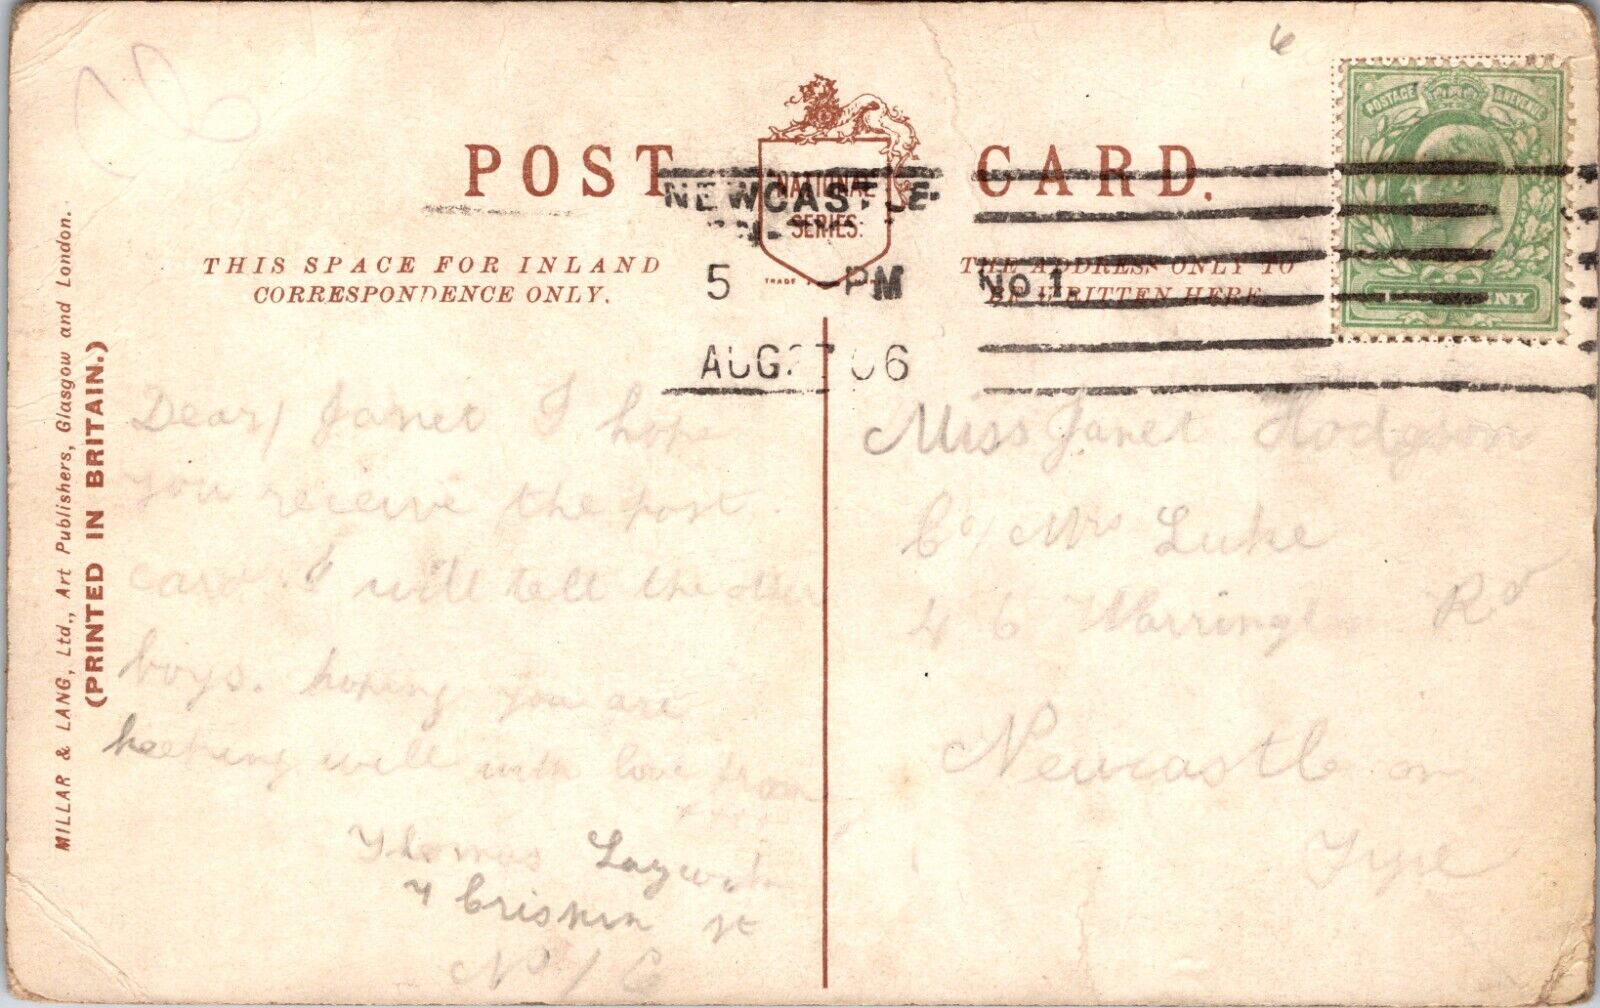 POST CARD.
NATIONAL
SERIES.
TRADE
POSTAGE & REVENUE
NEWCASTLE
5 PM No 1
AUG 27 06
THIS SPACE FOR INLAND
CORRESPONDENCE ONLY.
THE ADDRESS ONLY TO
BE WRITTEN HERE
MILLAR & LANG, Ltd., Art Publishers, Glasgow and London.
(PRINTED IN BRITAIN.)
6
Dear Janet I hope
you receive the post
card. I will tell the other
boys. hoping you are
keeping well with love from
Thomas
4 Crispin St
N/C
Miss Janet Hodgson
C/o Mrs Luke
46 Warrington Rd
Newcastle on
Tyne